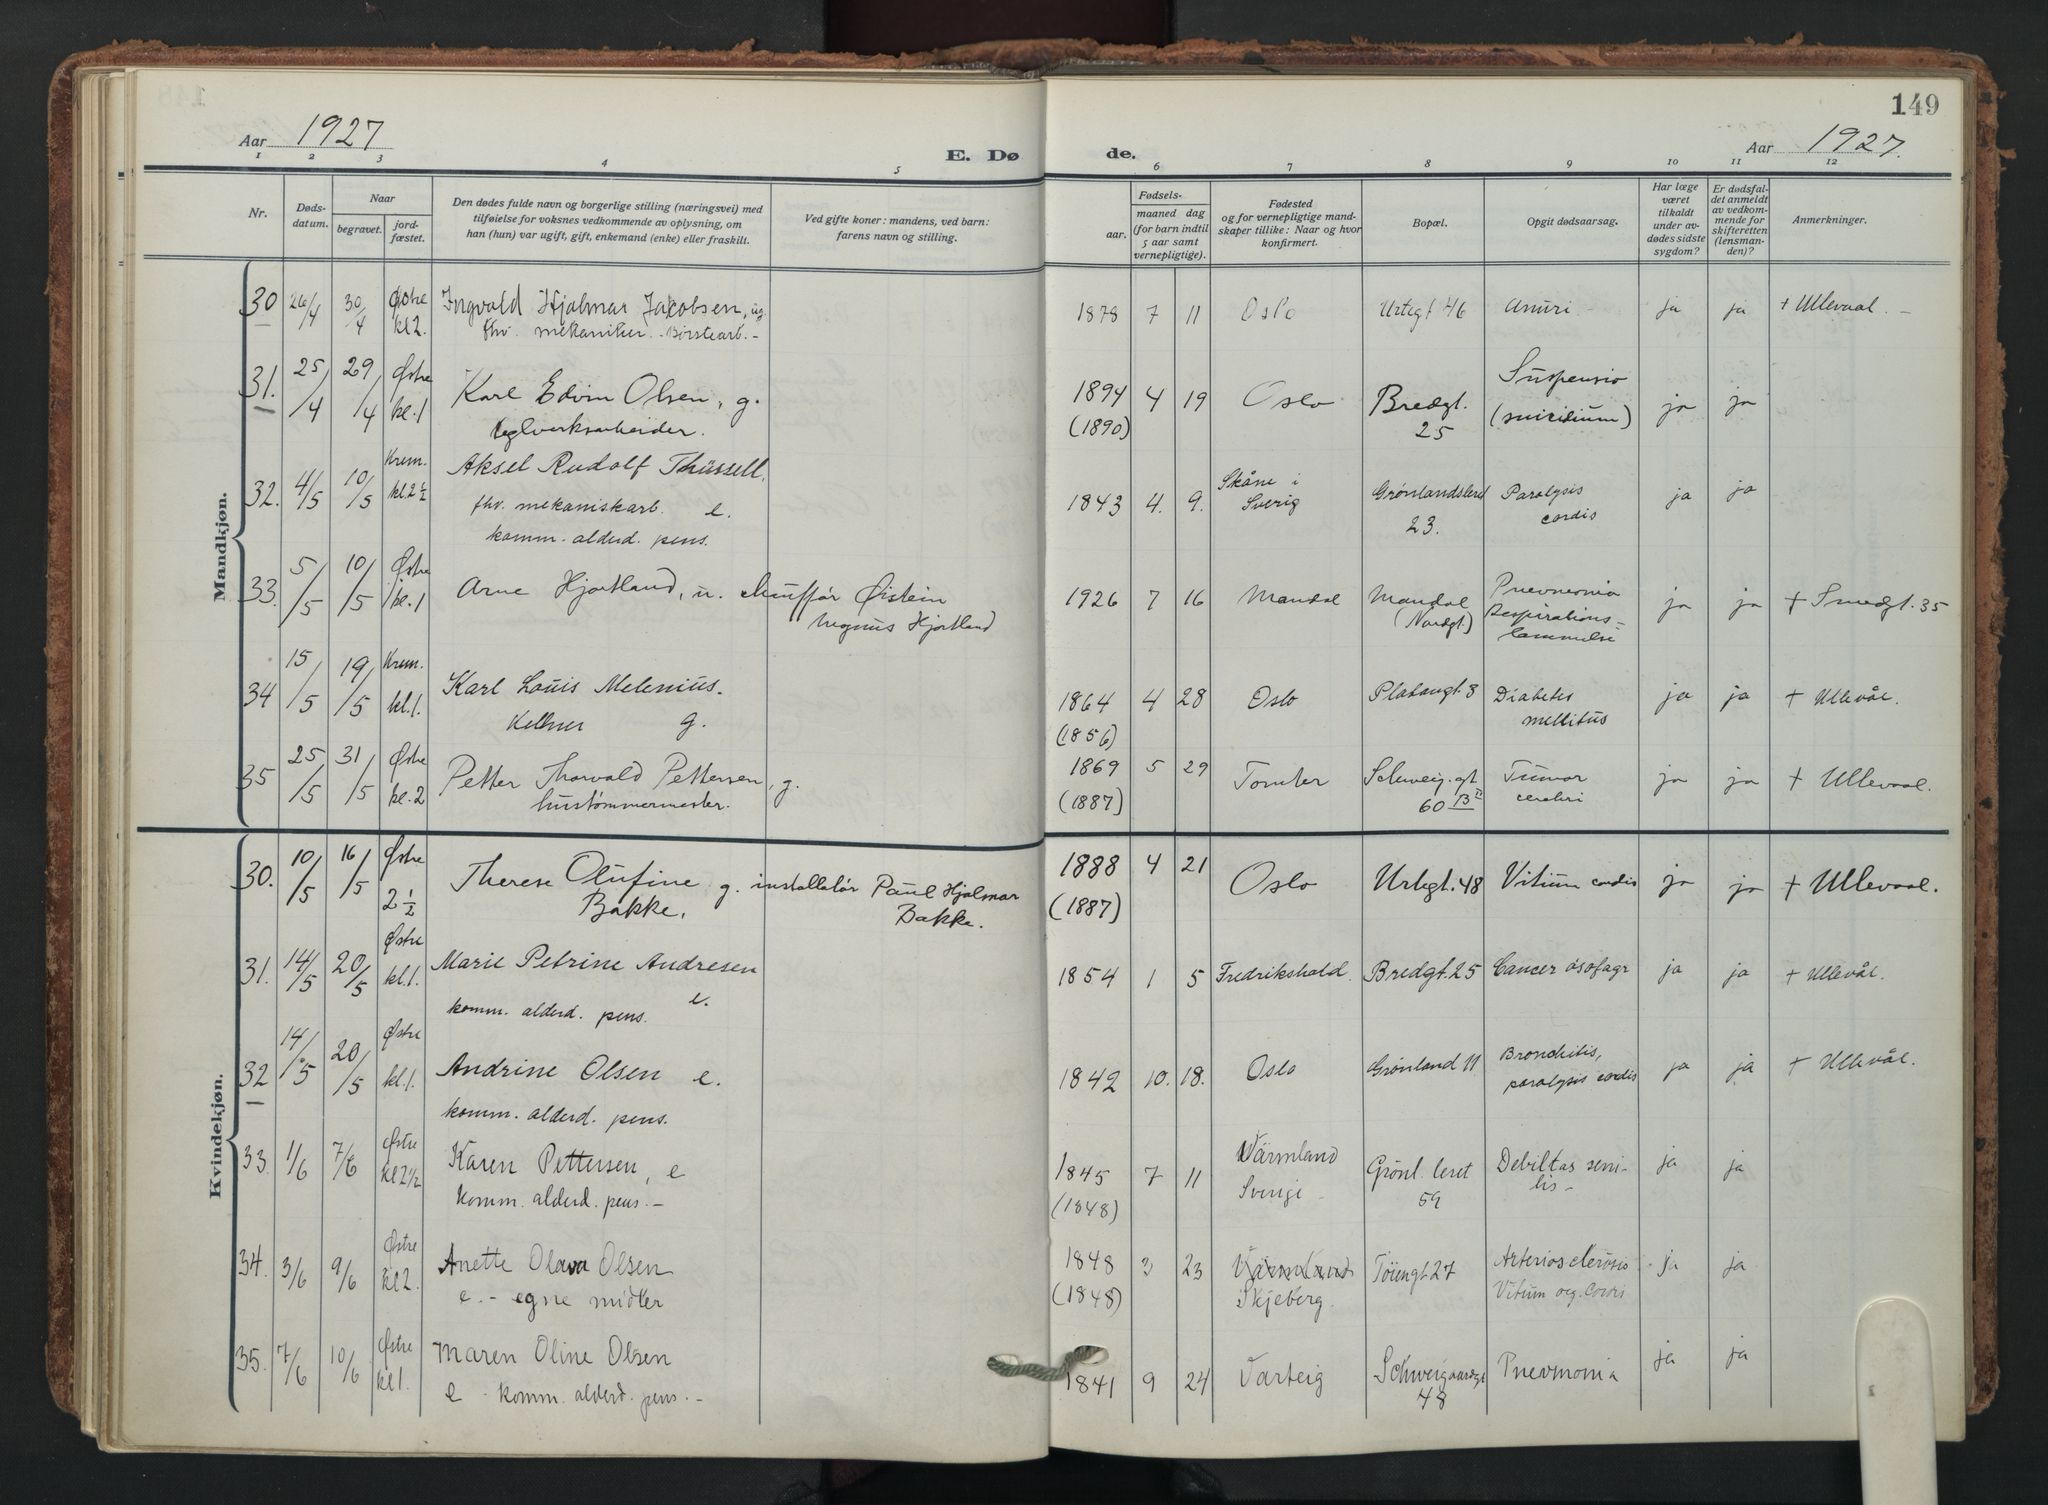 149
Aar 1927
E. Dø
de.
Aar 1927.
1 2 3 4 5 6 7 8 9 10 11 12
Nr.
Døds-
datum.
Naar
begravet.
jord-
fæstet.
Den dødes fulde navn og borgerlige stilling (næringsvei) med
tilføielse for voksnes vedkommende av oplysning, om
han (hun) var ugift, gift, enkemand (enke) eller fraskilt.
Ved gifte koner: mandens, ved barn:
farens navn og stilling.
Fødsels-
aar.
maaned dag
(for barn indtil
5 aar samt
vernepligtige).
Fødested
og for vernepligtige mand-
skaper tillike: Naar og hvor
konfirmert.
Bopæl.
Opgit dødsaarsag.
Har læge
været
tilkaldt
under av-
dødes sidste
sygdom?
Er dødsfal-
det anmeldt
av vedkom-
mende for
skifteretten
(lensman-
den)?
Anmerkninger.
Mandkjøn.
30 26/4 30/4 Østre Ingvald Hjalmar Jakobsen, ug. 1878 7 11 Oslo Urtegt 46 Anuri - ja ja + Ullevaal. -
kl 2. fhv. mekaniker. - Børstearb. -
31. 25/4 29/4 Østre Karl Edvin Olsen, g. 1894 4 19 Oslo Bredgt. Suspensio ja ja
kl. 1 teglverksarbeider. (1890) 25 (suicidium)
32. 4/5 10/5 Krem. Aksel Rudolf Thüssell. 1843 4. 9. Skåne i Grønlandsleret Paralysis ja ja
kl. 2 ½ fhv. mekaniskarb. e. Sverig 23. cordis
komm. alderd. pens.
33. 5/5 10/5 Østre Arne Hjortland, u. chauffør Øistein 1926 7 16 Mandal Mandal Pnevmonia ja ja + Smedgt. 35
kl. 1 Magnus Hjortland (Nordgt.) Respirations-
lammelse
34 15/5 19/5 Krem. Karl Louis Melenius. 1864 4 28 Oslo Platougt. 8 Diabetes ja ja + Ullevål.
kl. 1. Kellner g. (1856) mellitus
35 25/5 31/5 Østre Petter Thorvald Pettersen, g. 1869 5 29 Tomter Schweig. gt Tumor ja ja + Ullevaal.
kl. 2 hustømmermester. (1887) 60 B II cerebri
Kvindekjøn.
30. 10/5 16/5 Østre Therese Olufine g. installatør Paul Hjalmar 1888 4 21 Oslo Urtegt. 48 Vitium cordis ja ja + Ullevaal.
2 ½ Bakke, Bakke. (1887)
31. 14/5 20/5 Østre Marie Petrine Andresen 1854 1 5 Fredrikshald. Bredgt. 25 Cancer øsofagi ja ja + Ullevål.
kl. 1. komm. alderd. pens. e.
32 14/5 20/5 Østre Andrine Olsen e. 1842 10. 18. Oslo Grønland 11 Bronchitis, ja ja + Ullevål.
kl. 1. komm. alderd. pens. paralysis cordis
33. 1/6 7/6 Østre Karen Pettersen, e 1845 7 11 Värmland Grönl. leret Debilitas seni- ja ja
kl 2 ½ komm. alderd. pens. - (1848) Sverige - 59 lis -
34. 3/6 9/6 Østre Anette Olava Olsen 1848 3 23 Värmland Töiengt 27 Arteriosclerosis ja ja
kl 2. e. - egne midler (1848) Skjeberg. Vitium org. Cordis
35. 7/6 10/6 Østre Maren Oline Olsen 1841 9 24 Varteig Schweigaardgt Pnevmonia ja ja
kl 1. e - komm. alderd. pens. - 48